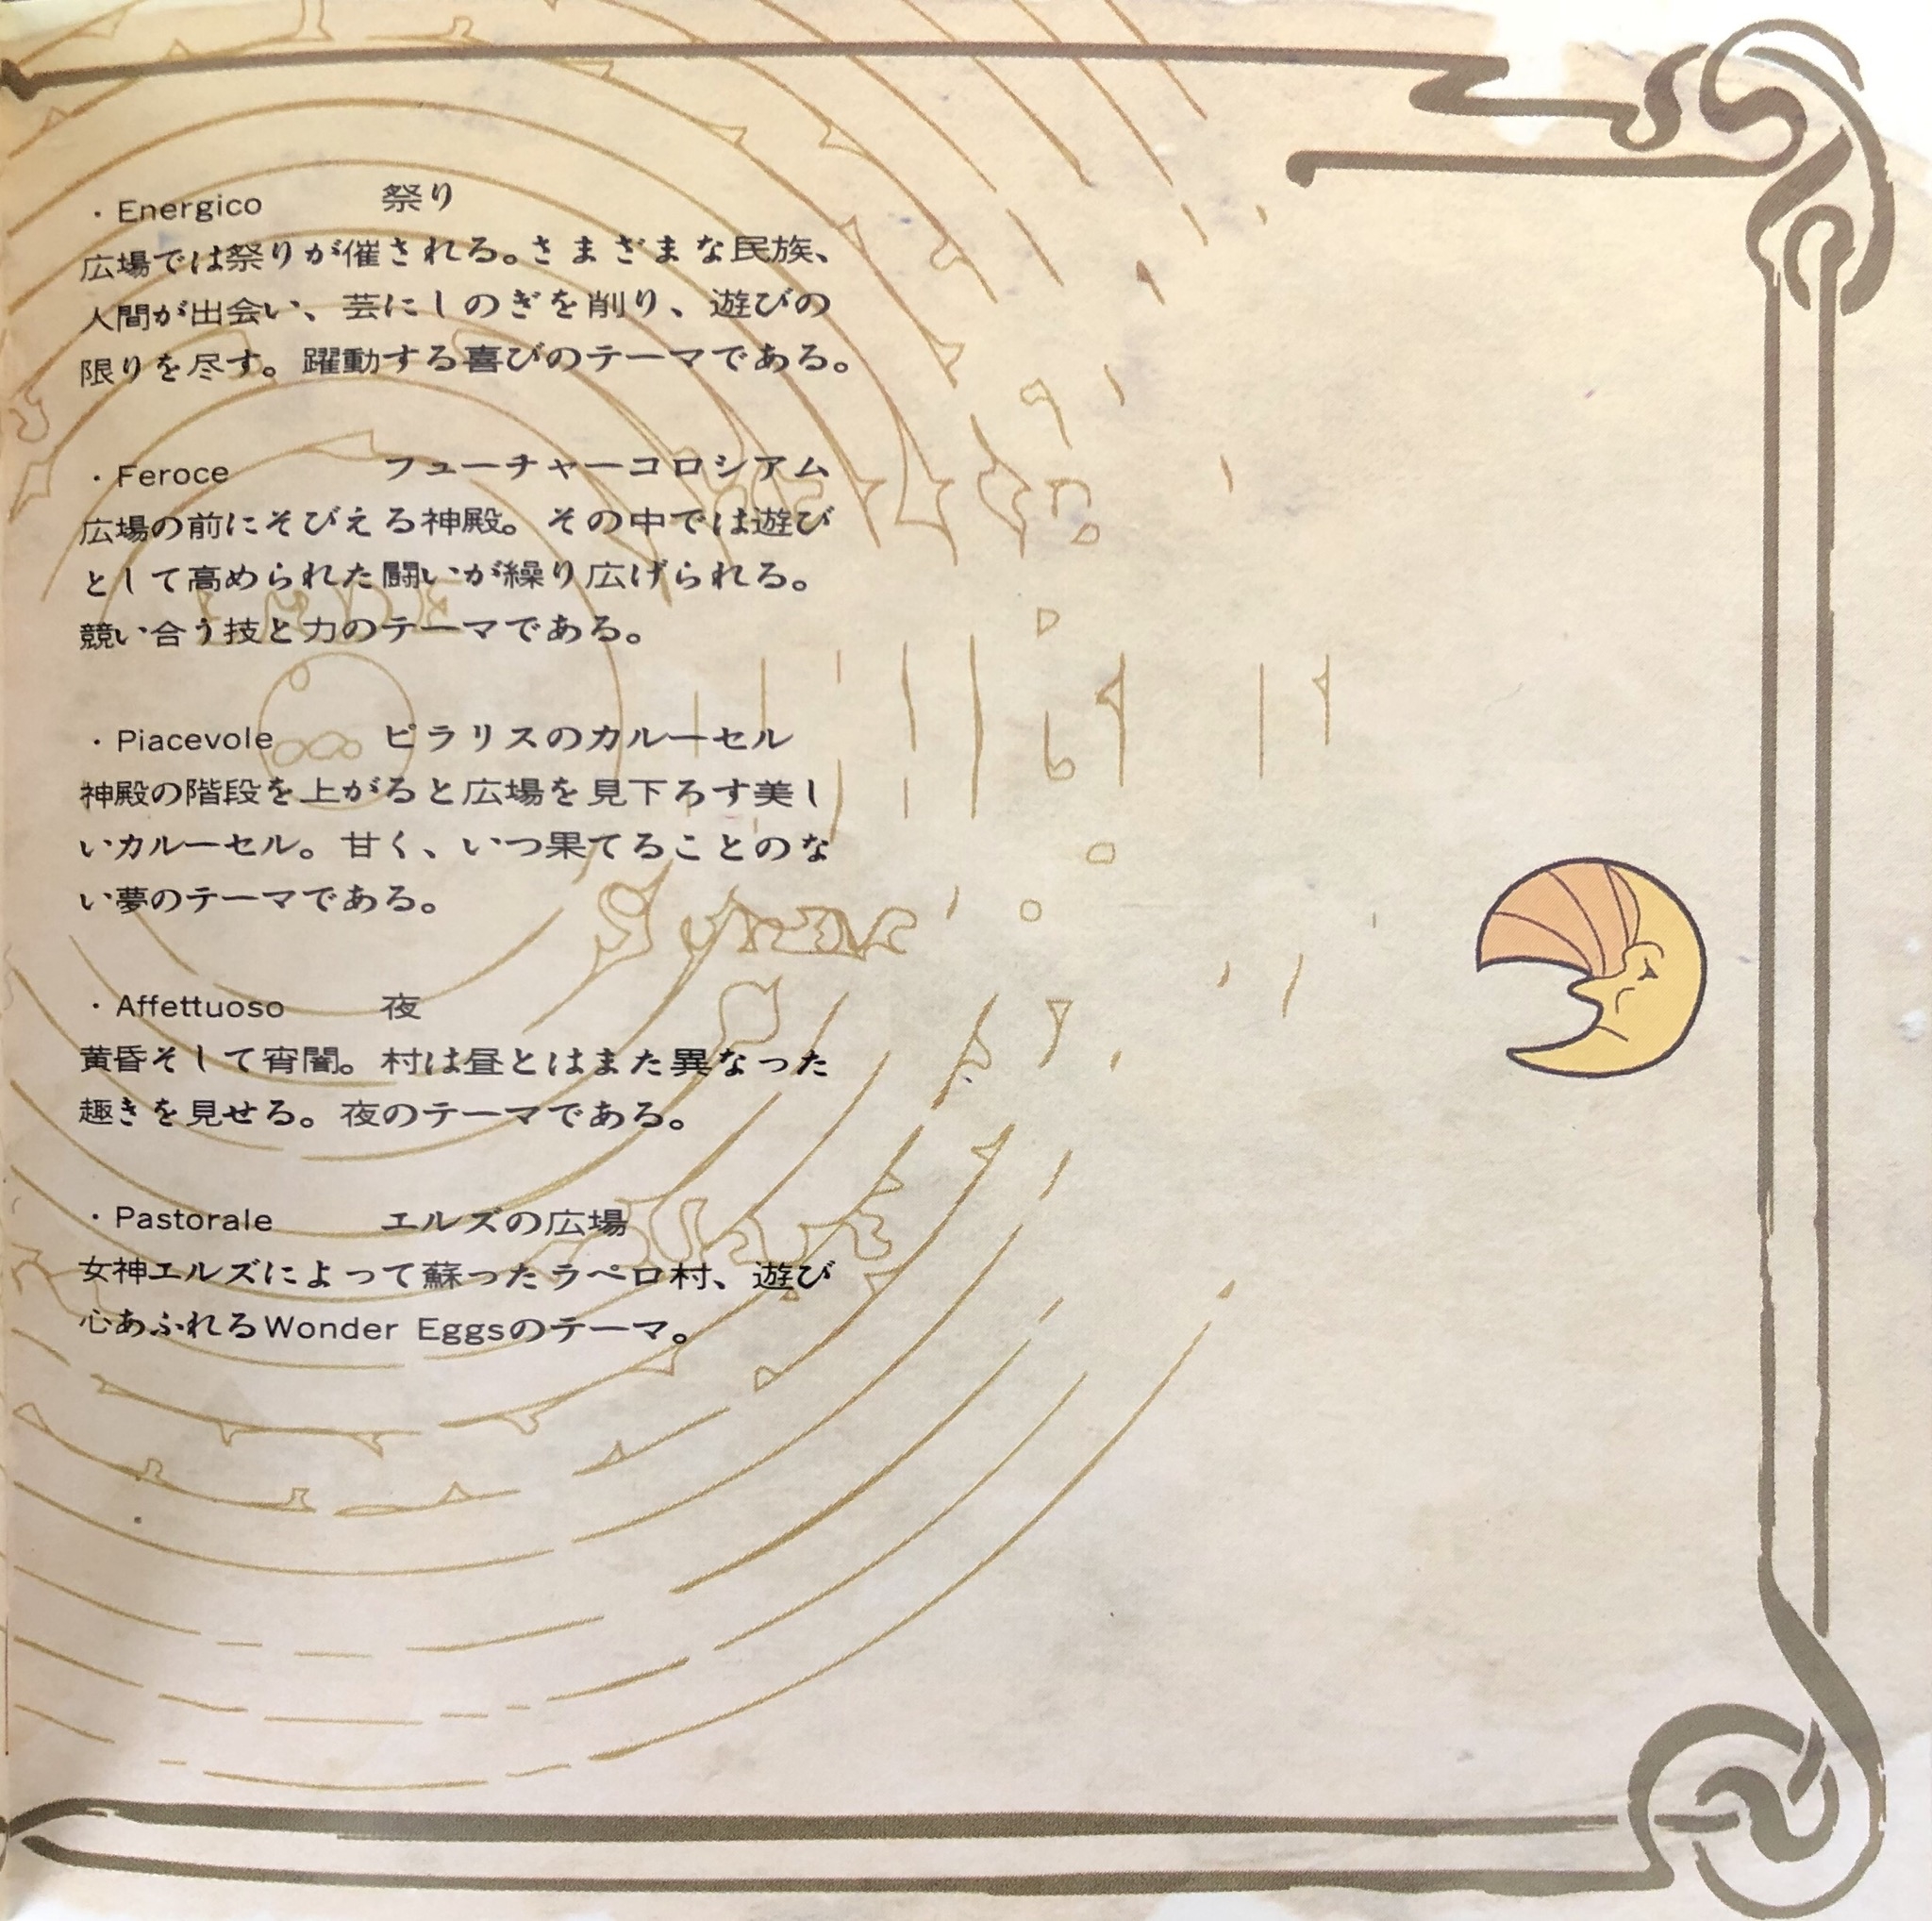 ・Energico 祭り
広場では祭りが催される。さまざまな民族、
人間が出会い、芸にしのぎを削り、遊びの
限りを尽す。躍動する喜びのテーマである。
・Feroce フューチャーコロシアム
広場の前にそびえる神殿。その中では遊び
として高められた闘いが繰り広げられる。
競い合う技と力のテーマである。
・Piacevole ピラリスのカルーセル
神殿の階段を上がると広場を見下ろす美し
いカルーセル。甘く、いつ果てることのな
い夢のテーマである。
・Affettuoso 夜
黄昏そして宵闇。村は昼とはまた異なった
趣きを見せる。夜のテーマである。
・Pastorale エルズの広場
女神エルズによって蘇ったラペロ村、遊び
心あふれるWonder Eggsのテーマ。